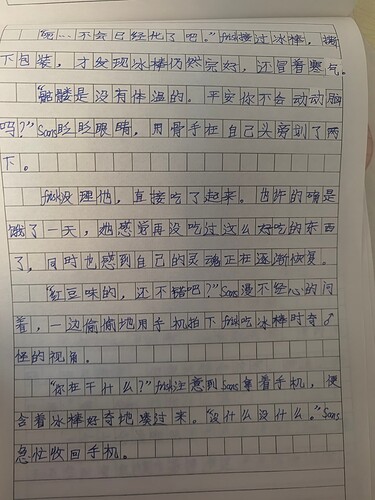 "呃…不会已经化了吧。"frisk接过冰棒，撕
下包装，才发现冰棒仍然完好，还冒着寒气。
"骷髅是没有体温的。平安你不会动动脑
吗？"Sans眨眨眼睛，用骨手在自己头旁划了两
下。
frisk没理他，直接吃了起来。也许的确是
饿了一天，她感觉再没吃过这么好吃的东西
了，同时也感到自己的灵魂正在逐渐恢复。
"红豆味的，还不错吧？"Sans漫不经心的问
着，一边偷偷地用手机拍下frisk吃冰棒时奇♂
怪的视角。
"你在干什么？"frisk注意到Sans拿着手机，便
含着冰棒好奇地凑过来。"没什么没什么。"Sans
急忙收回手机。